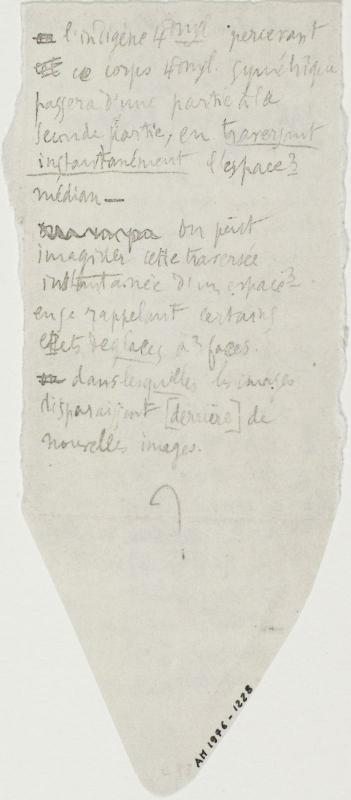 l'indigène 4dnyl percevant
ce corps 4dnyl. symétrique
passera d'une partie à la
seconde partie, en traversant
instantanément l'espace3
médian —
On peut
imaginer cette traversée
instantanée d'un espace3
en se rappelant certains
effets de glaces à 3 faces.
dans lesquelles les images
disparaissent [derrière] de
nouvelles images.
?
AM 1976-1228